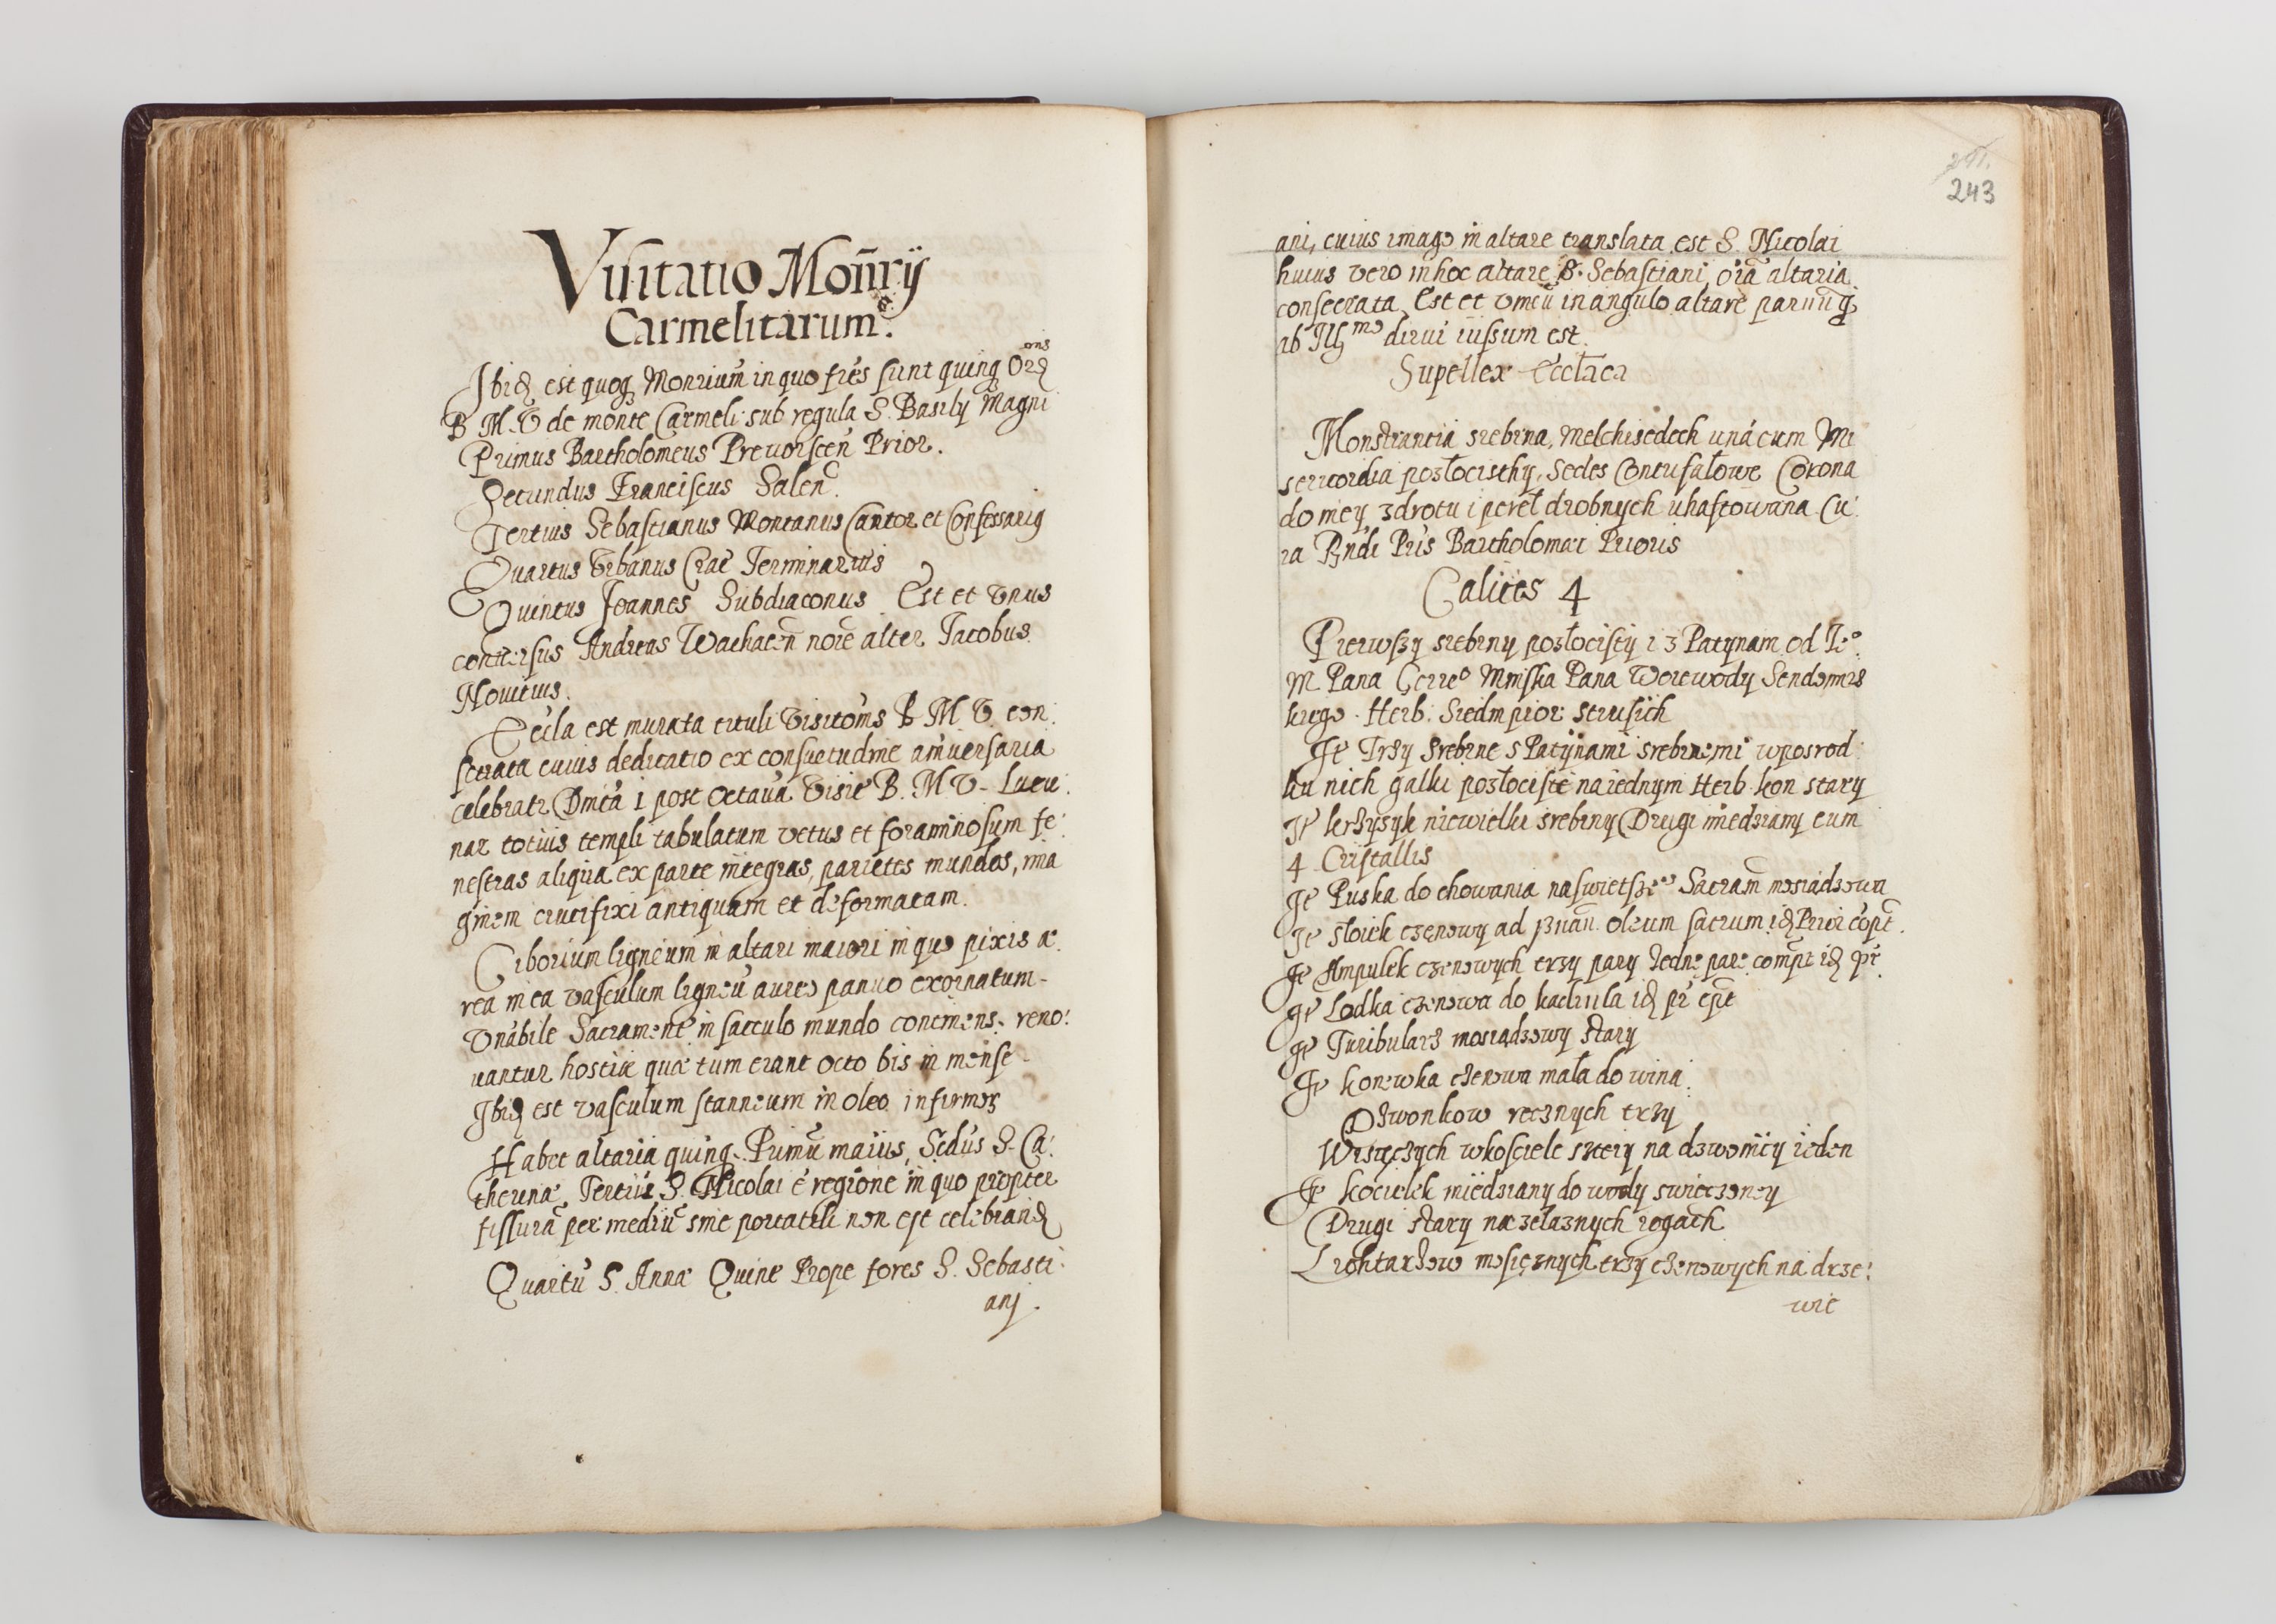 Visitatio Moñrÿ
Carmelitarum.
Ibid est quoq; Monrium̃ in quo fres sunt quinq; Ordonis
B M. V de monte Carmeli sub regula S. Basily Magni
Primus Bartholomeus Prevorscen̄ Prior.
Secundus Franciscus Salen̄.
Tertius Sebastianus Montanus Cantor et Confessarig
Quartus Urbanus Crac Terminarius
Quintus Joannes Subdiaconus Est et Unus
conversus Andreas Wachaen̄ noie alter Jacobus
Novitius.
Eccla est murata tituli Visitoms B M V. con:
secrata cuius dedicatio ex consuetudine aniversaria
celebratr Dmica 1 post octava Visie B. M. V. Lacu:
nar totius templi tabulatum vetus et foraminosum fe:
nestras aliqua ex parte integras, parietes mundos, ima
ginem crucifixi antiquam et deformatam.
Ciborium ligneum in altari maiori in quo pixis æ:
rea in ea vasculum ligneū aureo panno exornatum
Vnabile Sacrament̄ in sacculo mundo continens. reno:
vantur hostiæ quæ tum erant octo bis in mense
Ibid est vasculum stanneum in oleo infirmoȝ
Habet altaria quinq. Primū maius, Sedus S. Ca:
therinæ Tertiū S. Nicolai e regione in quo propter
fissurā per mediū sine portatili non est celebrand
Quartū S. Annæ Quint Prope fores S. Sebasti:
anj.
291.
243
ani, cuius imago in altare translata est S. Nicolai
huius vero in hoc altare S. Sebastiani, oia altaria
consecrata. Est et vmcū in angulo altare parvū q
ab Illmo dirui iussum est.
Supellex Ecclaca
Monstrantia srebrna, Melchisedech una cum Mi
sericordia pozłocisthy, Sedes Contusałowe Corona
do niey z drotu i pereł drobnych uhaftowana Cu:
ra Rndi Pris Bartholomæi Prioris
Calices 4
Pierwszy srebrny pozłocisty i z Patynam od Ieo
M Pana Gerreo Mniska Pana Woiewody Sendomirs
kiego. Herb. Siedm pior strusich
It Trzy Srebrne s Patynami srebrnemi wposrod:
ku nich gałki pozłociste na iednym Herb kon stary
It krzyzyk niewielki srebrny Drugi miedziany cum
4 Cristallis
It Puska do chowania naswietszeo Sacram mosiądzowa
It słoiek czenowy ad pznan. oleum sacrum id Prior copt.
It Ampułek czenowych trzy pary Iedne pare compt id pr.
It Lodka czenowa do kadzila id pr cpt
It Turibularz mosiądzowy stary
It konewka czenowa mała do wina.
Dzwonkow recznych trzy
Wisięczych w kosciele sztery na dzwonicy ieden
It kociełek miedziany do wody swieczoney
Drugi stary na zelaznych rogach
Lichtarzow mosięznych trzy czenowych na drze:
wie